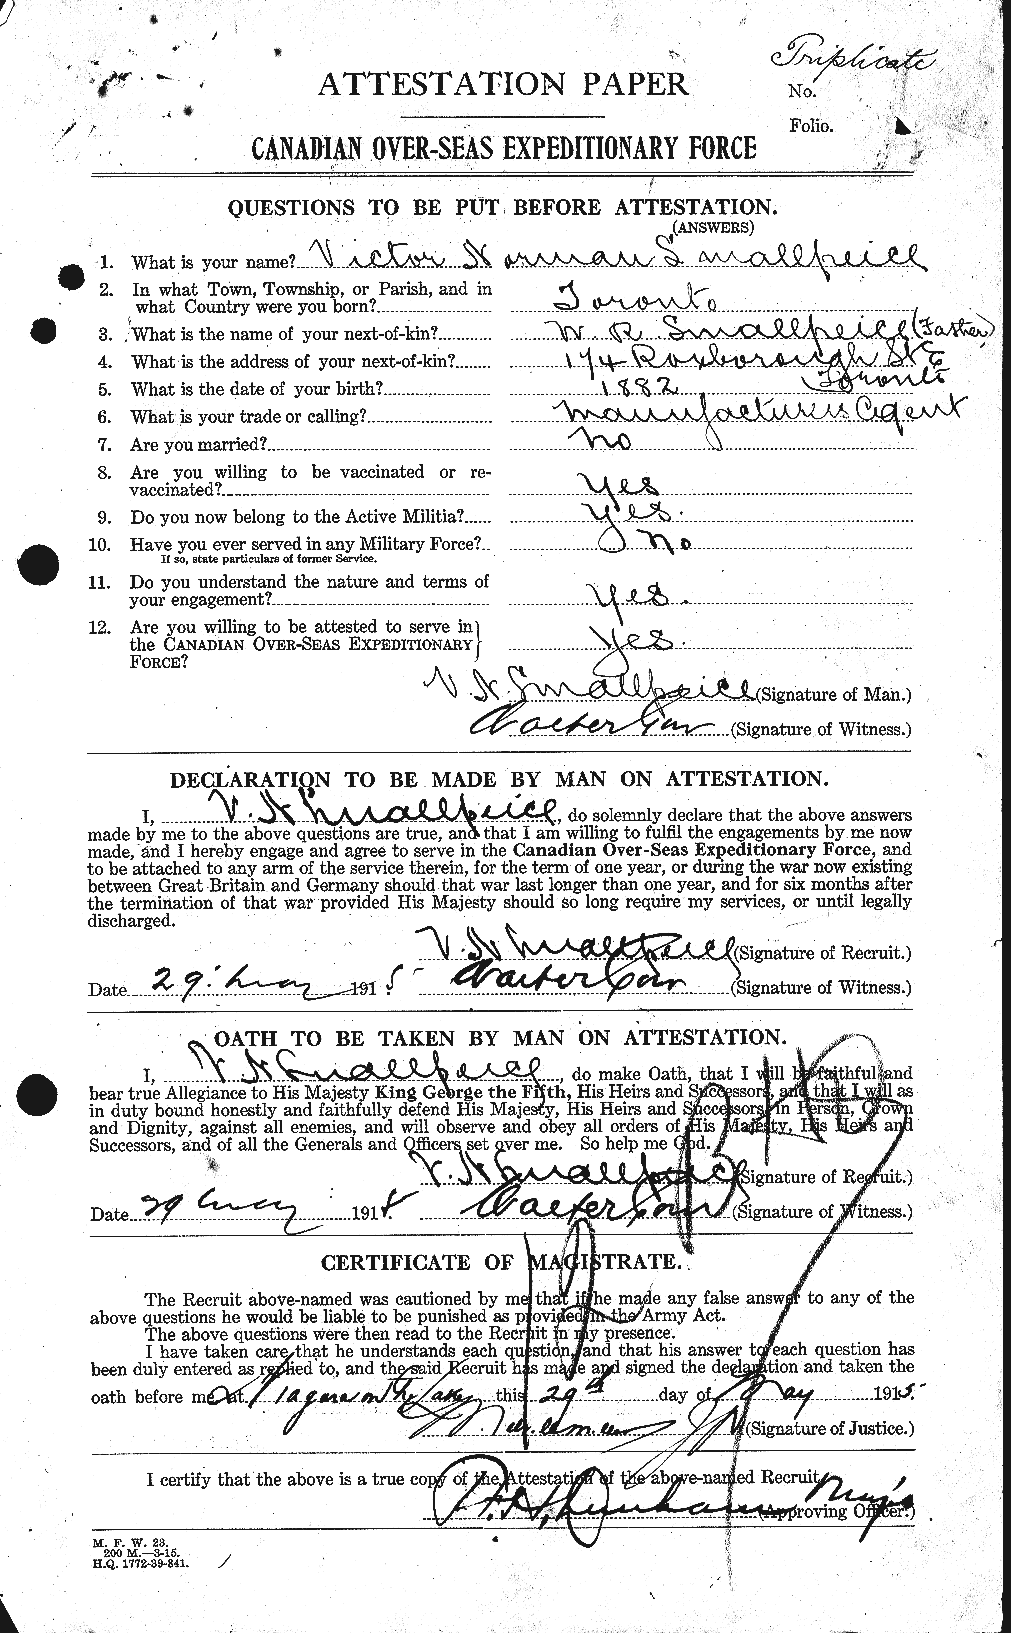 Triplicate
ATTESTATION PAPER
No.
Folio.
CANADIAN OVER-SEAS EXPEDITIONARY FORCE
QUESTIONS TO BE PUT BEFORE ATTESTATION.
(ANSWERS)
1. What is your name? Victor Norman Smallpeice
2. In what Town, Township, or Parish, and in
what Country were you born? Toronto
3. What is the name of your next-of-kin? W R Smallpeice (Father)
4. What is the address of your next-of-kin? 174 Roxborough St E
Toronto
5. What is the date of your birth? 1882
6. What is your trade or calling? Manufacturers Agent
7. Are you married? No
8. Are you willing to be vaccinated or re-
vaccinated? Yes
9. Do you now belong to the Active Militia? Yes.
10. Have you ever served in any Military Force? No
If so, state particulars of former Service.
11. Do you understand the nature and terms of
your engagement? Yes.
12. Are you willing to be attested to serve in
the CANADIAN OVER-SEAS EXPEDITIONARY
FORCE? Yes.
V. N. Smallpeice (Signature of Man.)
Walter (Signature of Witness.)
DECLARATION TO BE MADE BY MAN ON ATTESTATION.
I, V. N Smallpeice, do solemnly declare that the above answers
made by me to the above questions are true, and that I am willing to fulfil the engagements by me now
made, and I hereby engage and agree to serve in the Canadian Over-Seas Expeditionary Force, and
to be attached to any arm of the service therein, for the term of one year, or during the war now existing
between Great Britain and Germany should that war last longer than one year, and for six months after
the termination of that war provided His Majesty should so long require my services, or until legally
discharged.
V. N. Smallpeice (Signature of Recruit.)
Date 29 May 1915 Walter (Signature of Witness.)
OATH TO BE TAKEN BY MAN ON ATTESTATION.
I, V. N Smallpeice, do make Oath, that I will be faithful and
bear true Allegiance to His Majesty King George the Fifth, His Heirs and Successors, and that I will as
in duty bound honestly and faithfully defend His Majesty, His Heirs and Successors, in Person, Crown
and Dignity, against all enemies, and will observe and obey all orders of His Majesty, His Heirs and
Successors, and of all the Generals and Officers set over me. So help me God.
V. N Smallpeice (Signature of Recruit.)
Date 29 May 1915 Walter (Signature of Witness.)
CERTIFICATE OF MAGISTRATE.
The Recruit above-named was cautioned by me that if he made any false answer to any of the
above questions he would be liable to be punished as provided in the Army Act.
The above questions were then read to the Recruit in my presence.
I have taken care that he understands each question, and that his answer to each question has
been duly entered as replied to, and the said Recruit has made and signed the declaration and taken the
oath before me at Niagara on the Lake this 29th day of May 1915
(Signature of Justice.)
I certify that the above is a true copy of the Attestation of the above-named Recruit.
Major
(Approving Officer.)
M. F. W. 23.
200 M.—3-15.
H.Q. 1772-39-841.